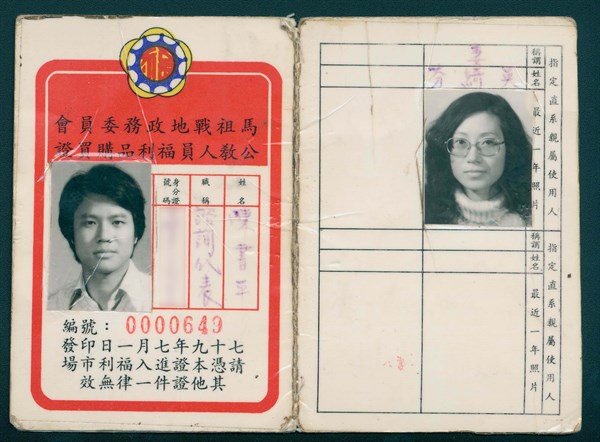 福
馬祖戰地政務委員會
公教人員福利品購買證
姓名
職稱
諮詢代表
身分證號碼
編號：0000649
七十九年七月一日印發
請憑本證進入福利市場
其他證件一律無效
指定直系親屬使用人
稱謂
妻
姓名
最近一年照片
指定直系親屬使用人
稱謂
姓名
最近一年照片